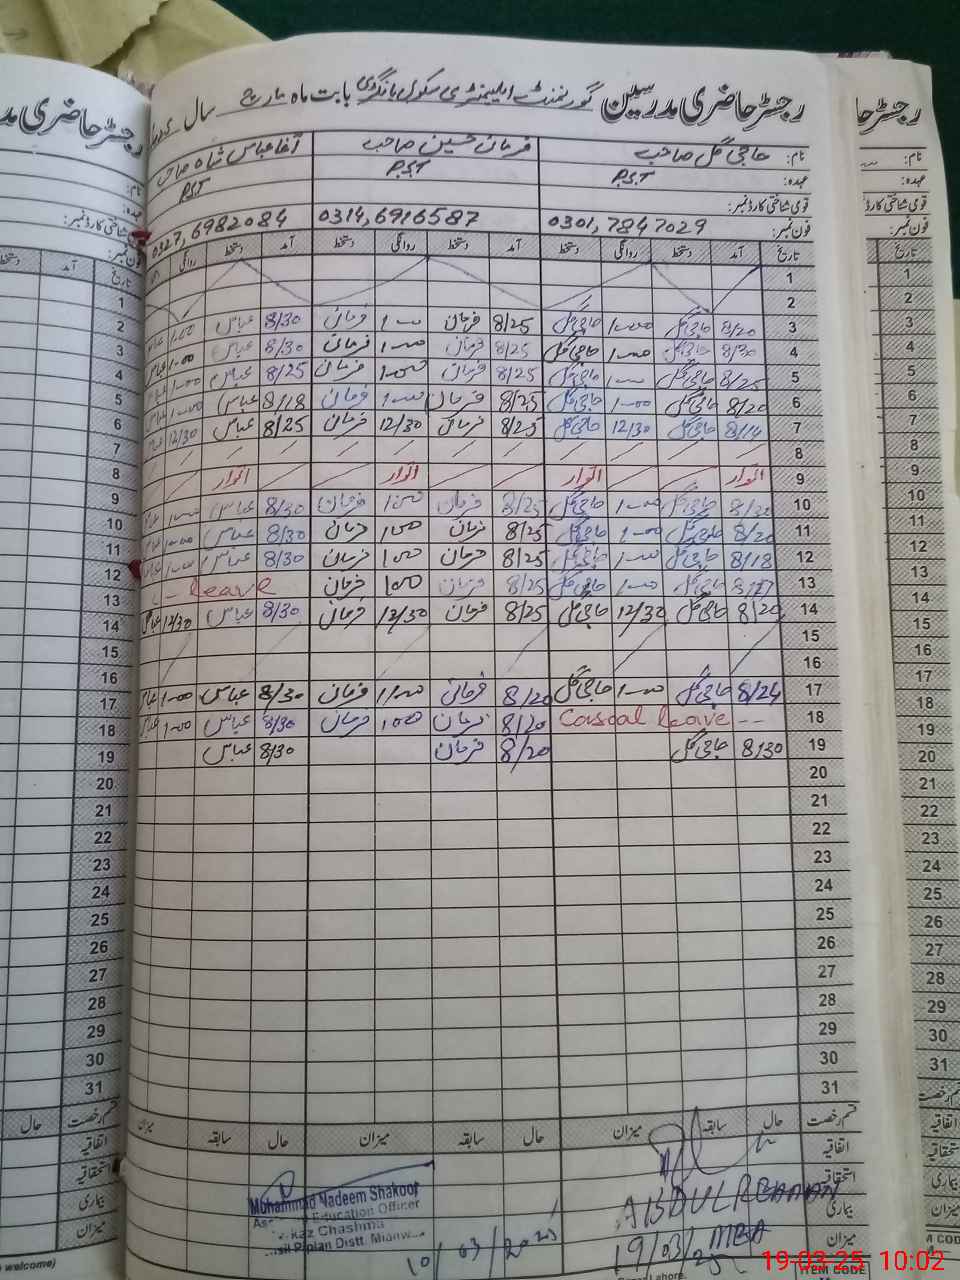 رجسٹر حاضری مدرسین گورنمنٹ ایلیمنٹری سکول بابت ماہ مارچ سال
نام: حاجی گل صاحب فرمان حسین صاحب آغا عباس شاہ صاحب
عہدہ: P.S.T P.S.T PST
قومی شناختی کارڈ نمبر:
فون نمبر: 0301,7847029 0314,6916587 0327,6982084
تاریخ آمد دستخط روانگی دستخط آمد دستخط روانگی دستخط آمد دستخط روانگی
1
2
3 8/20 حاجی گل 1-00 حاجی گل 8/25 فرمان 1-00 فرمان 8/30 عباس 1-00
4 حاجی گل 1-00 حاجی گل 8/25 فرمان 1-00 فرمان 8/30 عباس 1-00
5 8/25 حاجی گل 1-00 حاجی گل 8/25 فرمان 1-00 فرمان 8/25 عباس 1-00
6 8/20 حاجی گل 1-00 حاجی گل 8/25 فرمان 1-00 فرمان 8/18 عباس 1-00
7 8/14 حاجی گل 12/30 حاجی گل 8/25 فرمان 12/30 فرمان 8/25 عباس 12/30
8
9 اتوار اتوار اتوار اتوار
10 8/30 حاجی گل 1-00 حاجی گل 8/25 فرمان 1-00 فرمان 8/30 عباس 1-00
11 8/20 حاجی گل 1-00 حاجی گل 8/25 فرمان 1-00 فرمان 8/30 عباس 1-00
12 8/18 حاجی گل 1-00 حاجی گل 8/25 فرمان 1-00 فرمان 8/30 عباس 1-00
13 8/17 حاجی گل 1-00 حاجی گل 8/25 فرمان 1-00 فرمان Leave
14 8/20 حاجی گل 12/30 حاجی گل 8/25 فرمان 12/30 فرمان 8/30 عباس 12/30 عباس
15
16
17 8/24 حاجی گل 1-00 حاجی گل 8/20 فرمان 1-00 فرمان 8/30 عباس 1-00 عباس
18 Casual Leave -- 8/20 فرمان 1-00 فرمان 8/30 عباس 1-00 عباس
19 8/30 حاجی گل 8/20 فرمان 8/30 عباس
20
21
22
23
24
25
26
27
28
29
30
31
قسم رخصت حال سابقہ میزان حال سابقہ میزان حال سابقہ میزان
اتفاقیہ
استحقاقیہ
بیماری
میزان
Muhammad Nadeem Shakoor
Assistant Education Officer
Markaz Chashma
Tehsil Piplan Distt. Mianwali
10/03/2025
ABDUL REHMAN
MBA
19/03/25
19-03-25 10:02
ITEM CODE
Lahore.
welcome)
رجسٹر حاضری
نام:
عہدہ:
قومی شناختی کارڈ
فون نمبر:
تاریخ